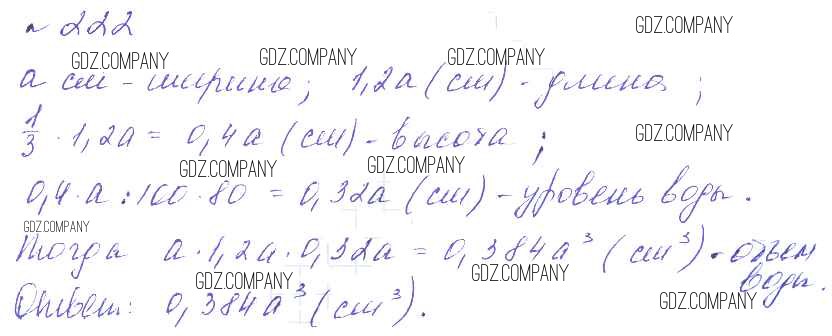 № 222
GDZ.COMPANY
GDZ.COMPANY GDZ.COMPANY GDZ.COMPANY
a см - ширина; 1,2a (см) - длина;
GDZ.COMPANY
1/3 · 1,2a = 0,4a (см) - высота;
GDZ.COMPANY GDZ.COMPANY
0,4·a : 100 · 80 = 0,32a (см) - уровень воды.
GDZ.COMPANY
Тогда a · 1,2a · 0,32a = 0,384a³ (см³) - объем
воды.
GDZ.COMPANY GDZ.COMPANY
Ответ: 0,384a³ (см³).
GDZ.COMPANY